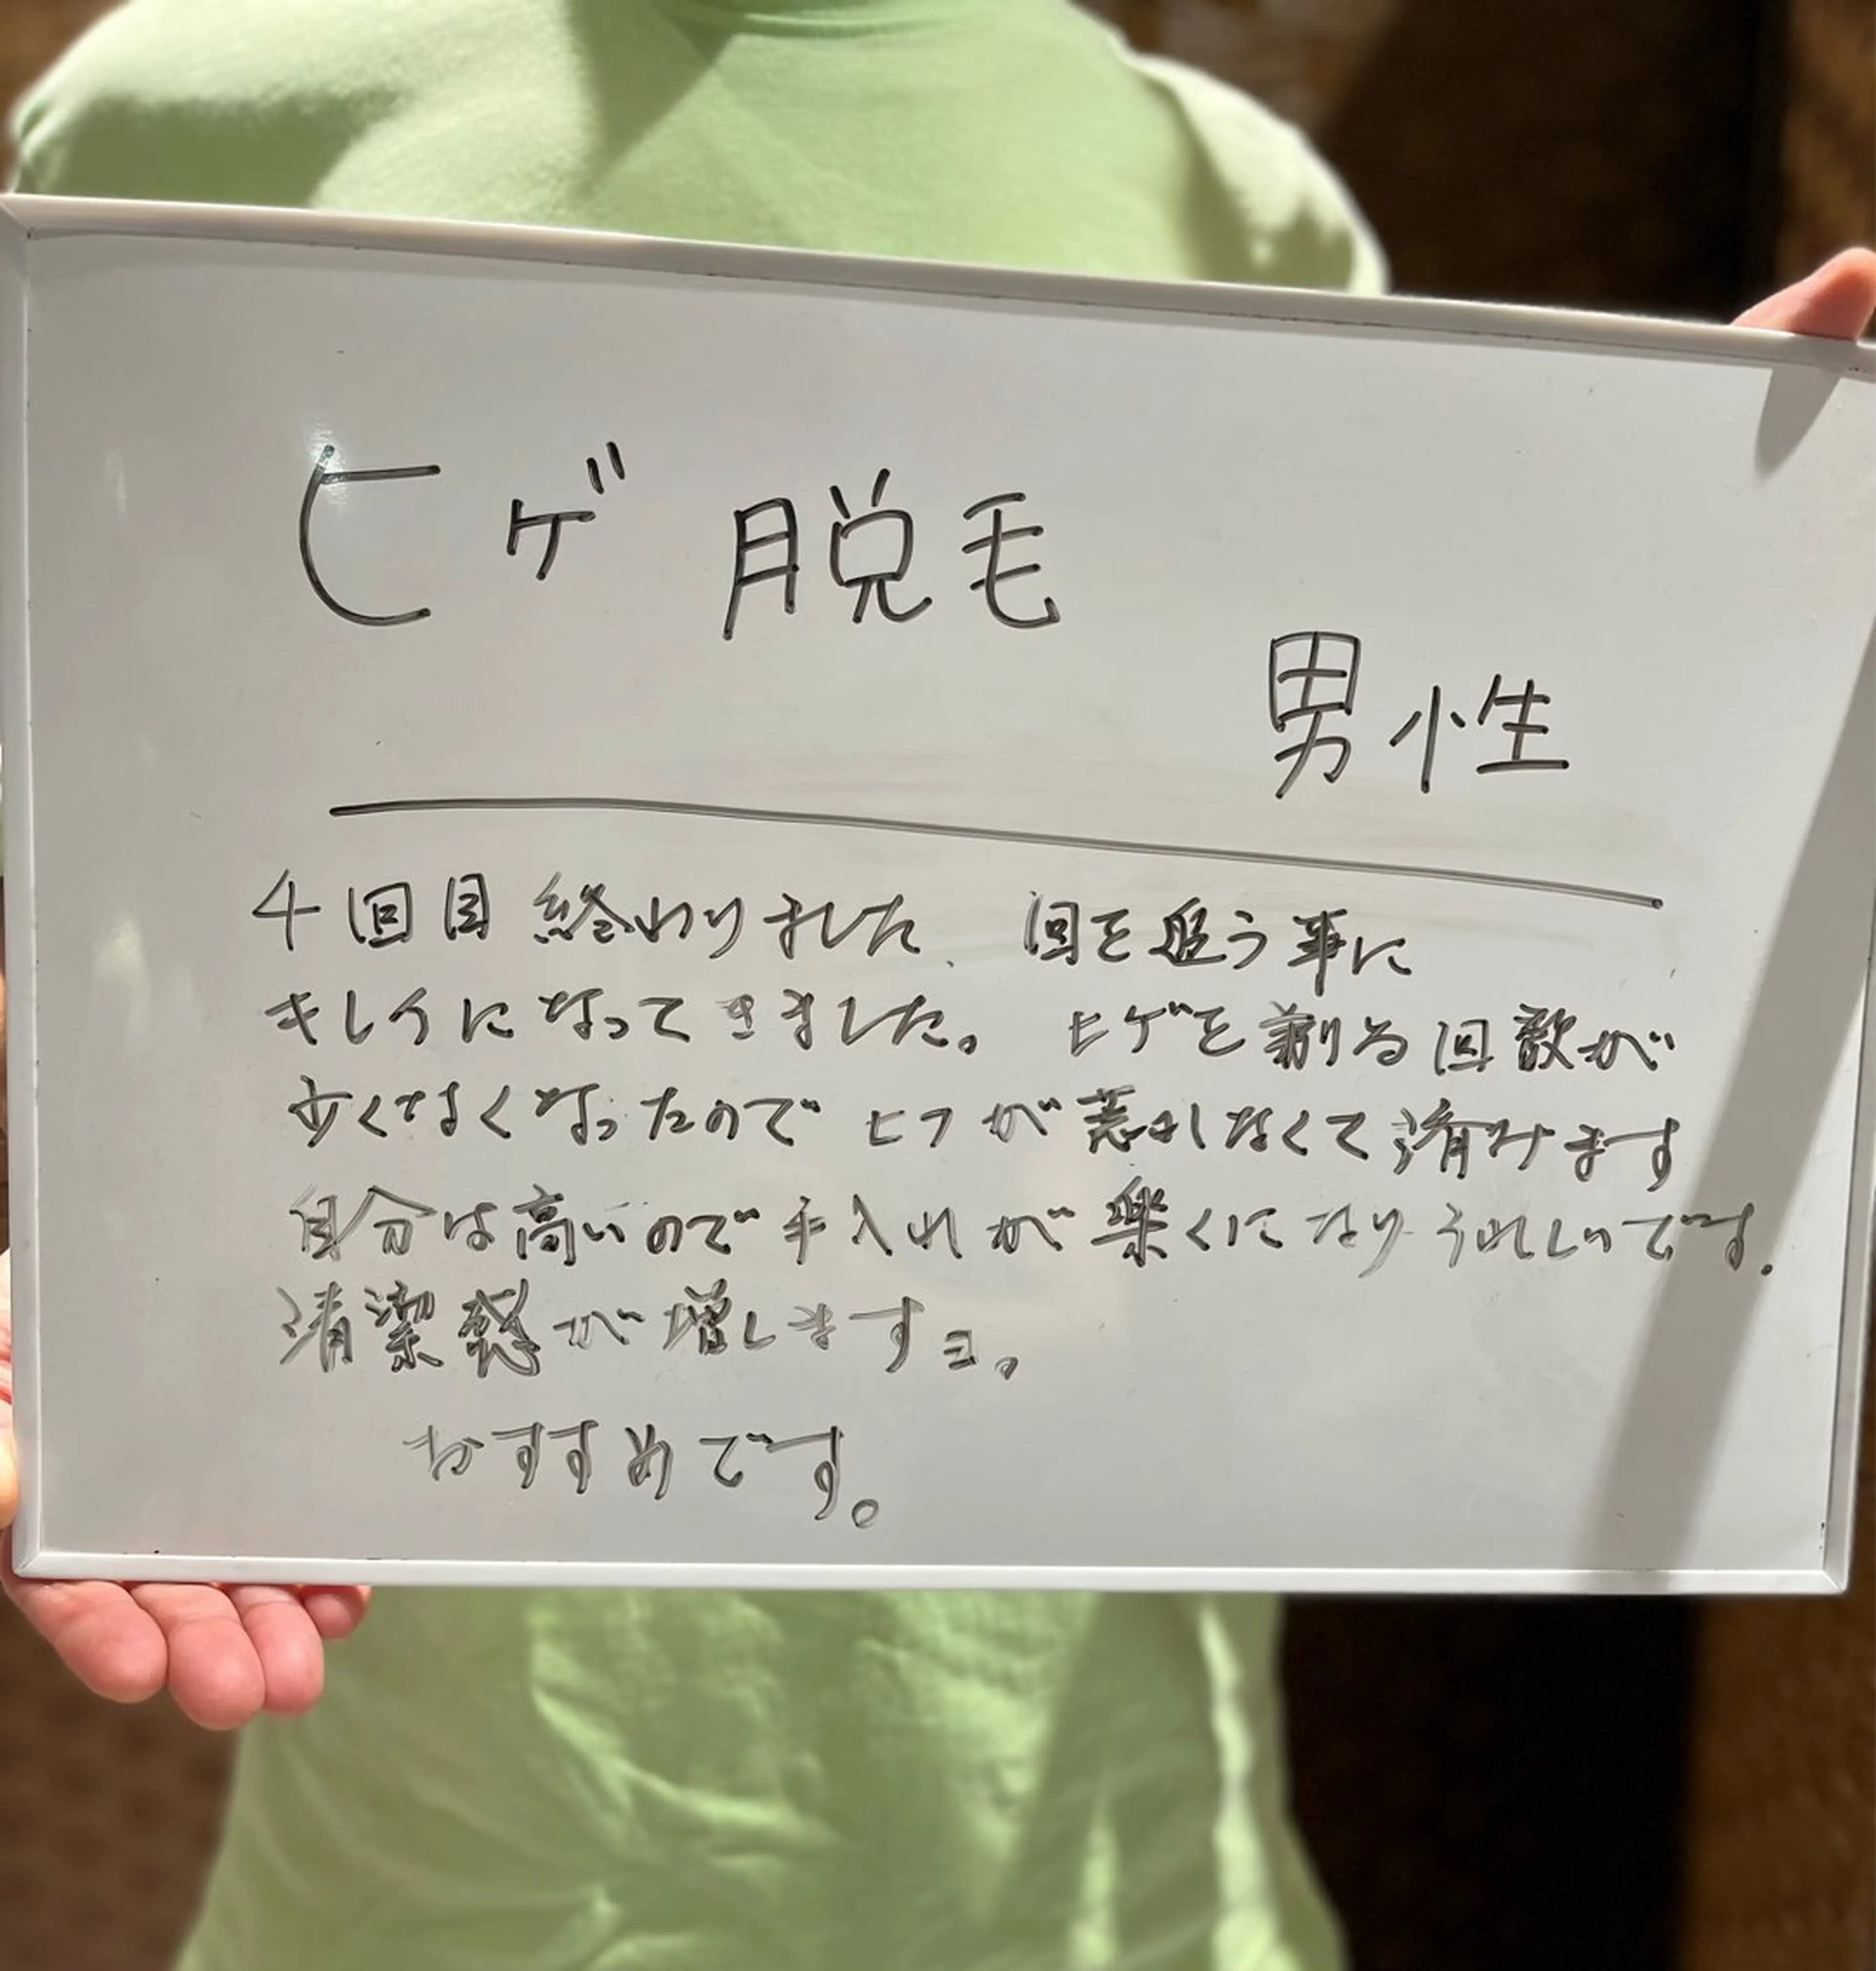 ヒゲ脱毛
男性
4回目終わりました、回を追う事に
キレイになってきました。ヒゲを剃る回数が
少くなくなったのでヒフが荒れしなくて済みます
自分は高いので手入れが楽くになりうれしいです.
清潔感が増しますヨ。
おすすめです。